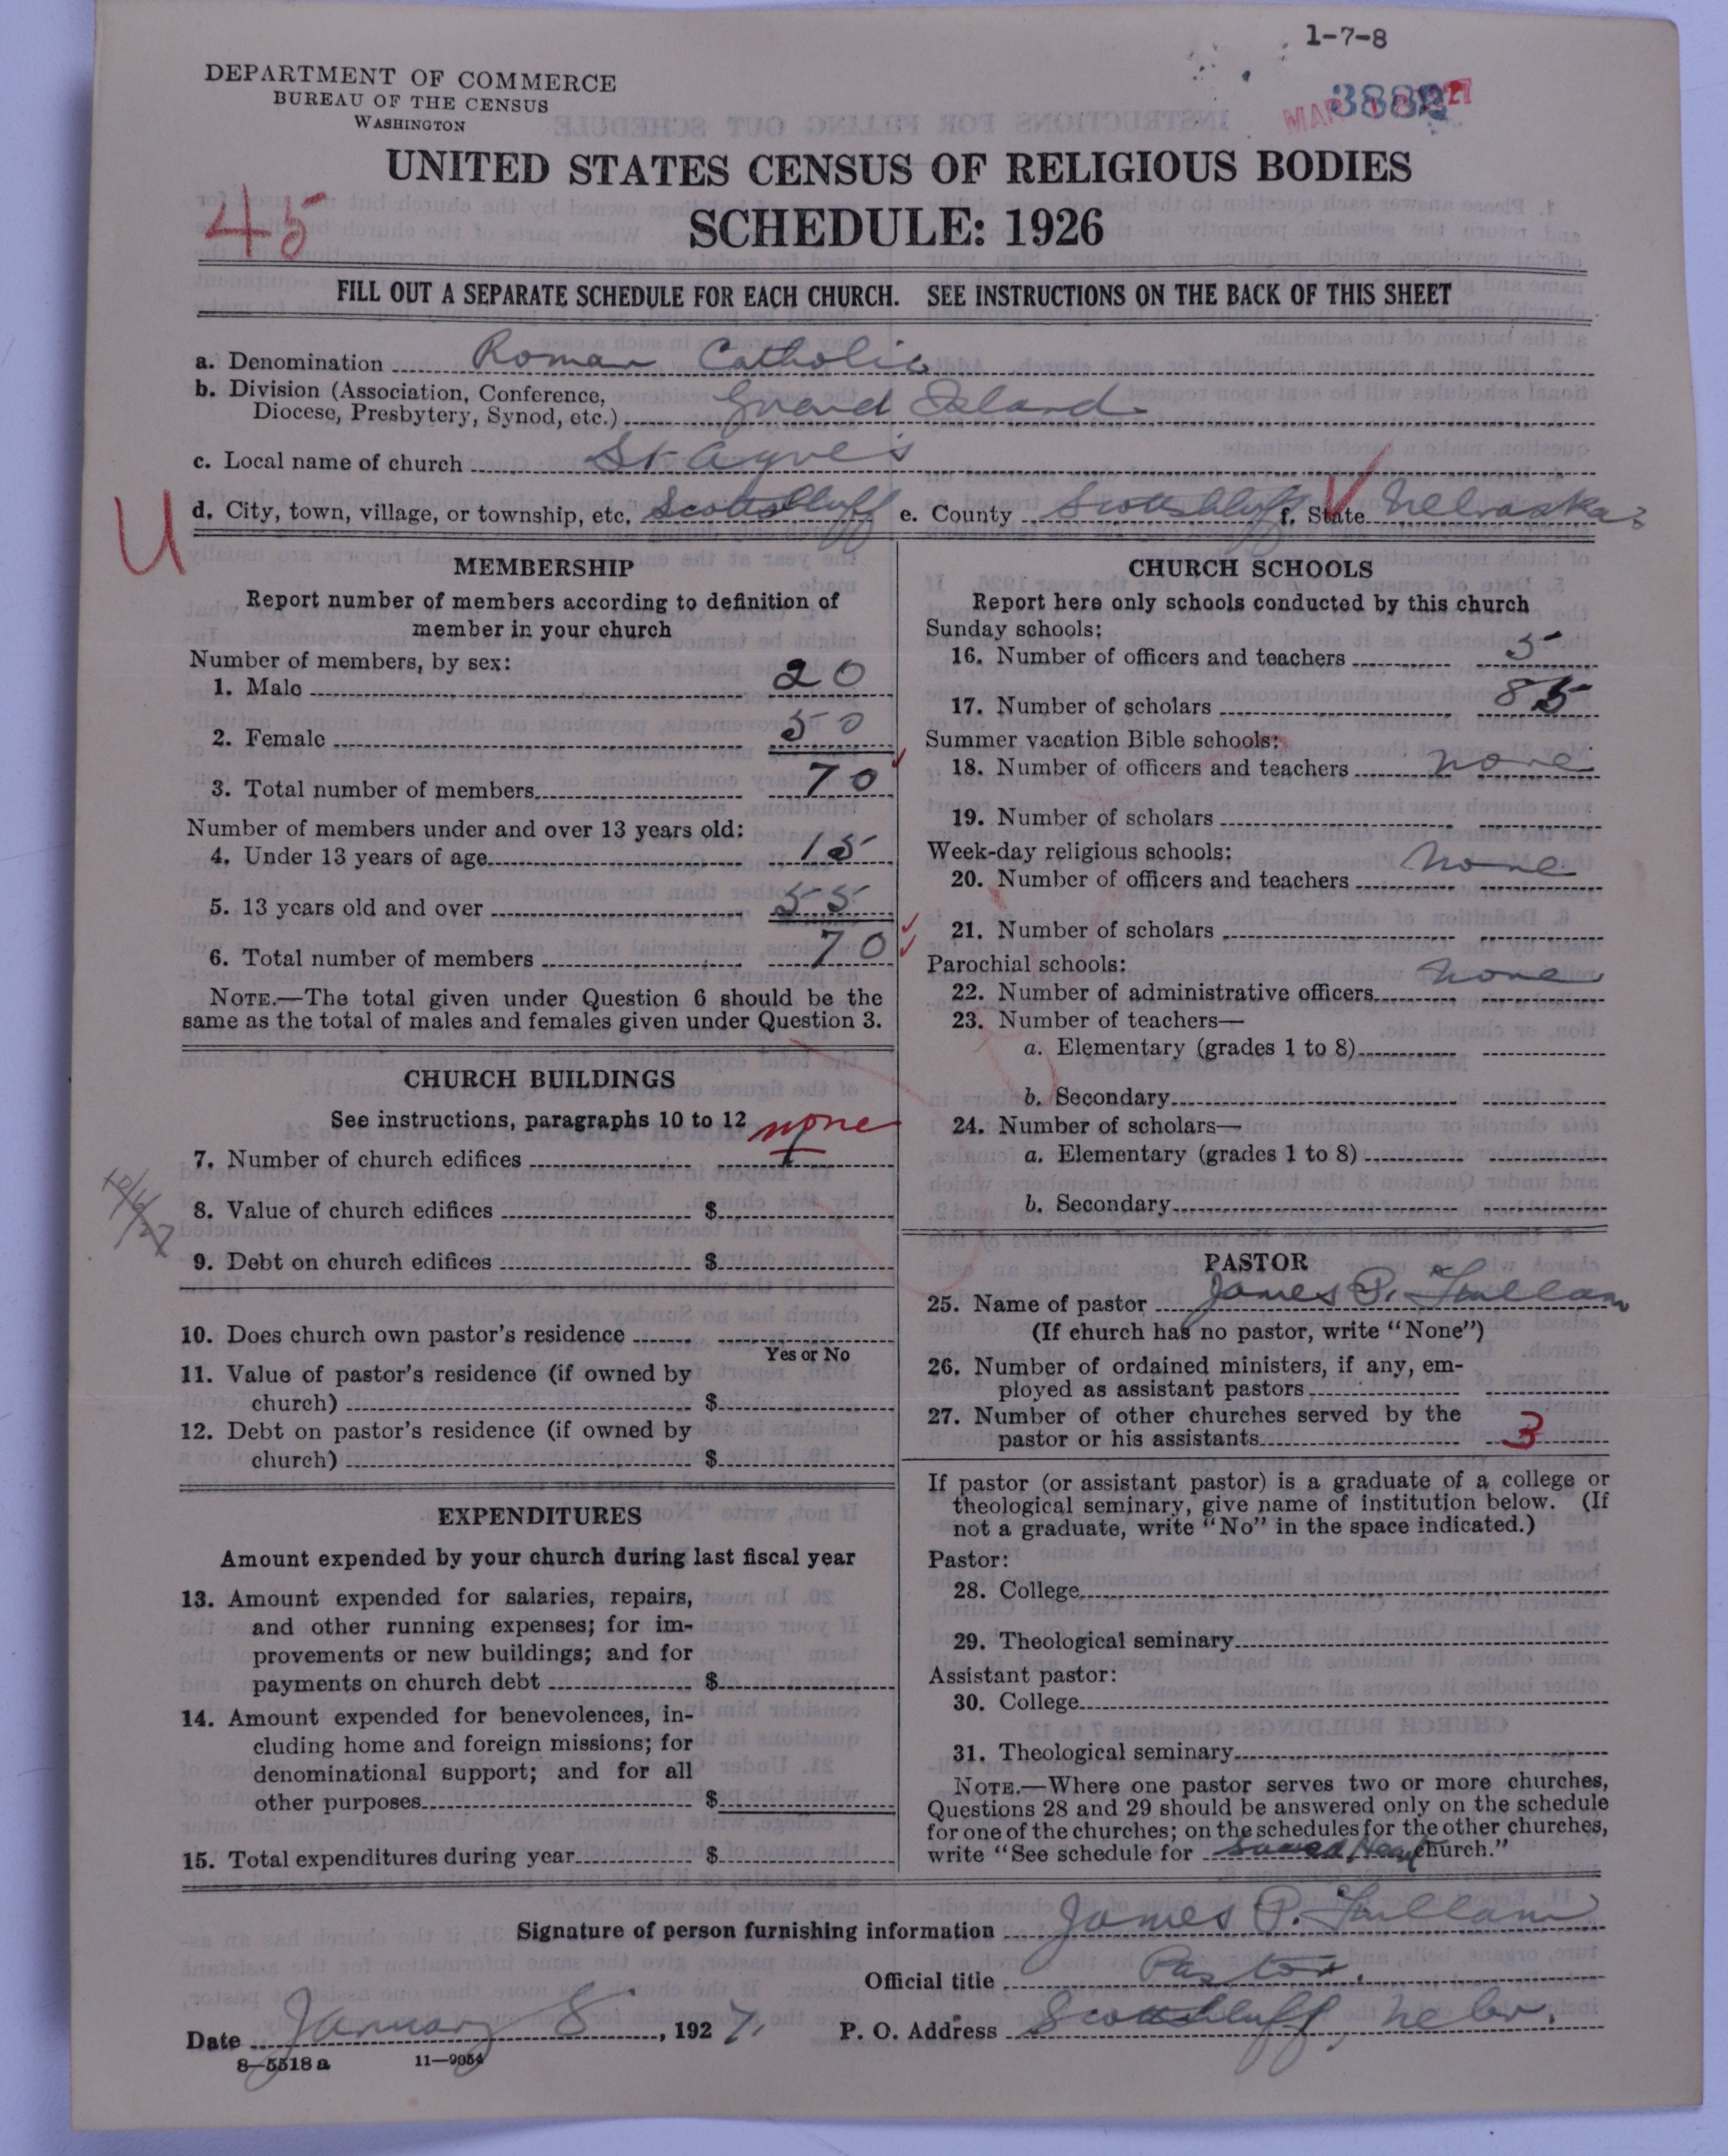 1-7-8
DEPARTMENT OF COMMERCE
BUREAU OF THE CENSUS
WASHINGTON
3882
MAR 1927
UNITED STATES CENSUS OF RELIGIOUS BODIES
45
SCHEDULE: 1926
FILL OUT A SEPARATE SCHEDULE FOR EACH CHURCH. SEE INSTRUCTIONS ON THE BACK OF THIS SHEET
a. Denomination Roman Catholic
b. Division (Association, Conference,
Diocese, Presbytery, Synod, etc.) Grand Island
c. Local name of church St Agnes
U
d. City, town, village, or township, etc. Scottsbluff e. County Scottsbluff f. State Nebraska
MEMBERSHIP
Report number of members according to definition of
member in your church
Number of members, by sex:
1. Male 20
2. Female 50
3. Total number of members 70
Number of members under and over 13 years old:
4. Under 13 years of age 15
5. 13 years old and over 55
6. Total number of members 70
NOTE.—The total given under Question 6 should be the
same as the total of males and females given under Question 3.
CHURCH BUILDINGS
See instructions, paragraphs 10 to 12 none
7. Number of church edifices
8. Value of church edifices $
9. Debt on church edifices $
10. Does church own pastor's residence
Yes or No
11. Value of pastor's residence (if owned by
church) $
12. Debt on pastor's residence (if owned by
church) $
EXPENDITURES
Amount expended by your church during last fiscal year
13. Amount expended for salaries, repairs,
and other running expenses; for im-
provements or new buildings; and for
payments on church debt $
14. Amount expended for benevolences, in-
cluding home and foreign missions; for
denominational support; and for all
other purposes $
15. Total expenditures during year $
CHURCH SCHOOLS
Report here only schools conducted by this church
Sunday schools:
16. Number of officers and teachers 5
17. Number of scholars 85
Summer vacation Bible schools:
18. Number of officers and teachers none
19. Number of scholars
Week-day religious schools:
20. Number of officers and teachers none
21. Number of scholars
Parochial schools:
22. Number of administrative officers none
23. Number of teachers—
a. Elementary (grades 1 to 8)
b. Secondary
24. Number of scholars—
a. Elementary (grades 1 to 8)
b. Secondary
PASTOR
25. Name of pastor James P.
(If church has no pastor, write "None")
26. Number of ordained ministers, if any, em-
ployed as assistant pastors
27. Number of other churches served by the
pastor or his assistants 3
If pastor (or assistant pastor) is a graduate of a college or
theological seminary, give name of institution below. (If
not a graduate, write "No" in the space indicated.)
Pastor:
28. College
29. Theological seminary
Assistant pastor:
30. College
31. Theological seminary
NOTE.—Where one pastor serves two or more churches,
Questions 28 and 29 should be answered only on the schedule
for one of the churches; on the schedules for the other churches,
write "See schedule for Sacred Heart Church."
Signature of person furnishing information James P.
Official title Pastor.
Date January 8, 1927. P. O. Address Scottsbluff, Nebr.
8—5518 a 11—9054